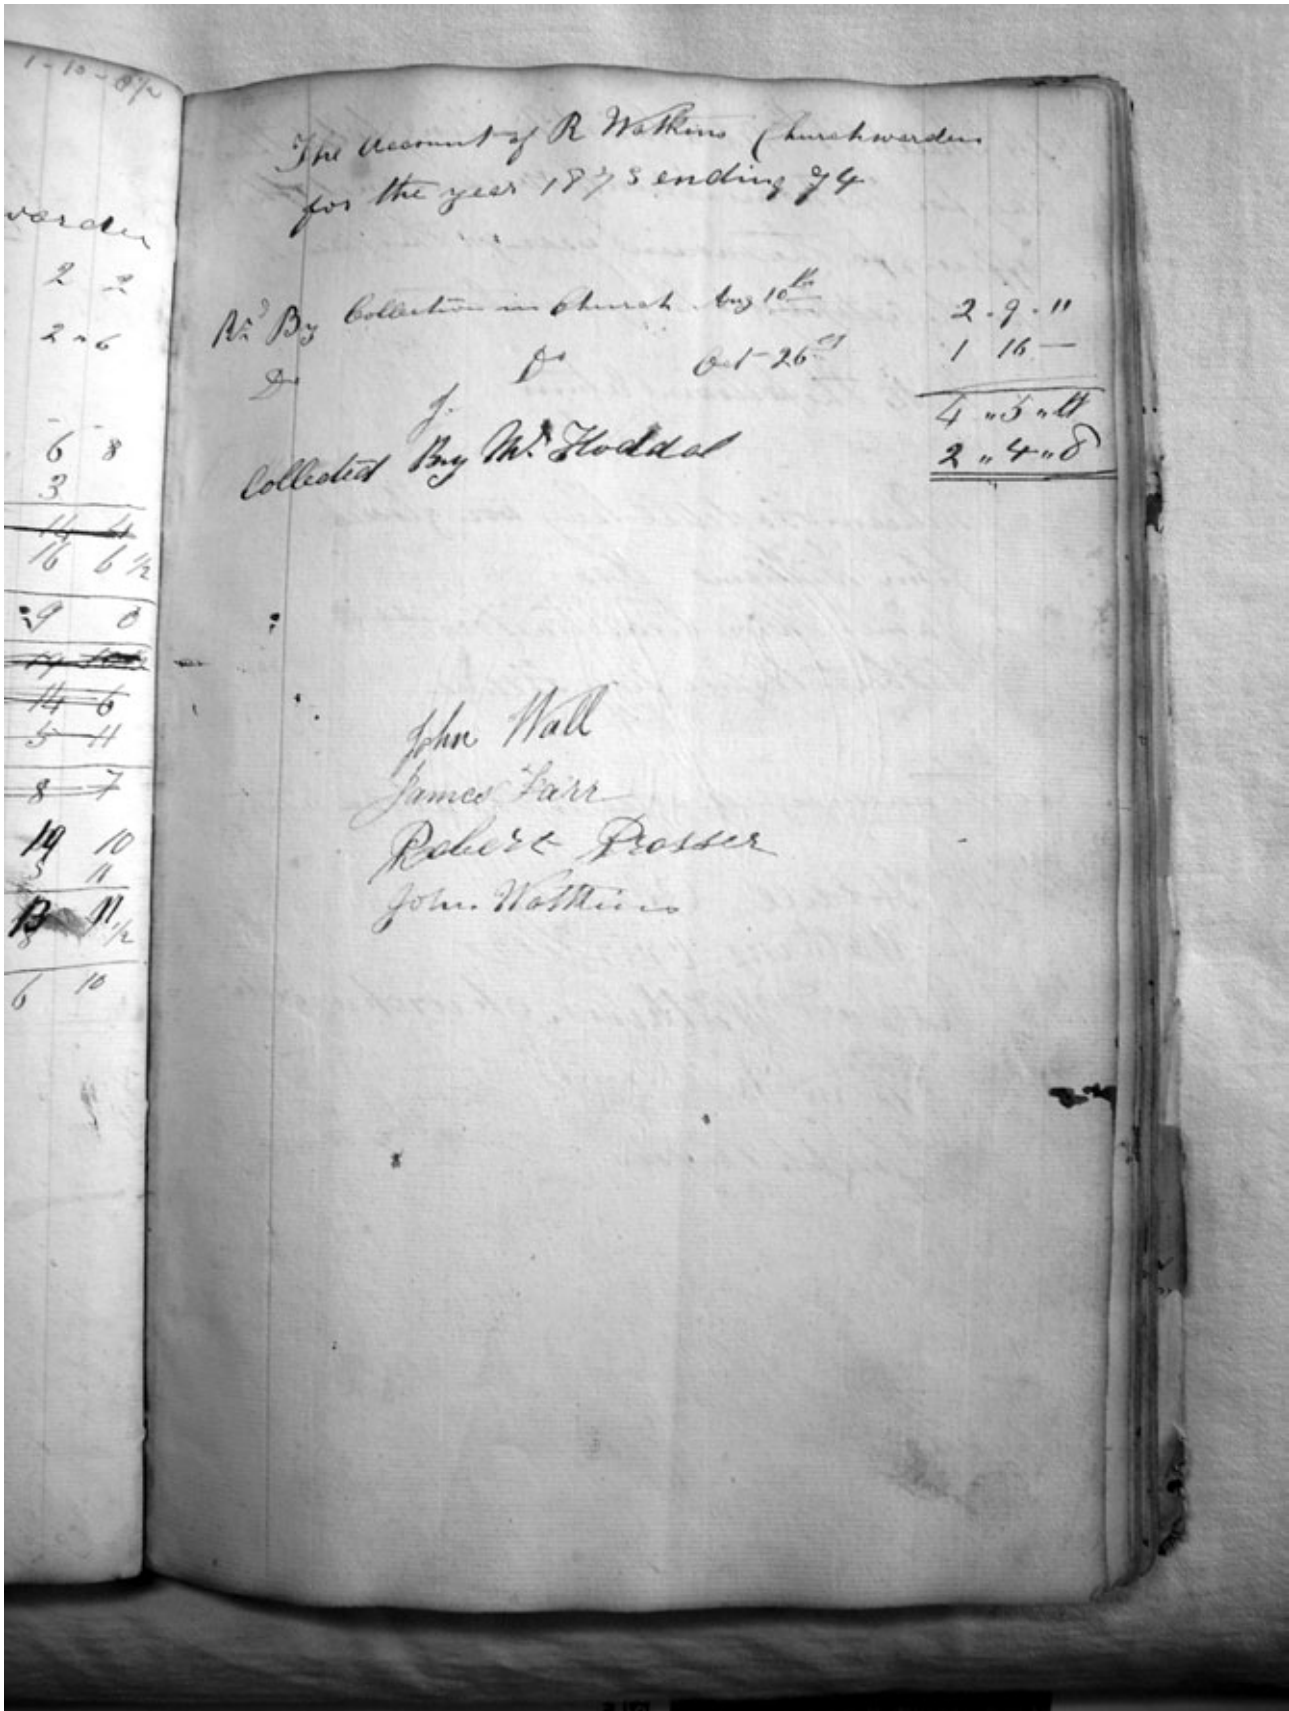 1-10-8 1/2
warden
2 2
2 " 6
6 8
3
14 4
16 6 1/2
9 0
14 6
5 11
8 7
19 10
5 11
13 11 1/2
6 10
The Account of R Watkins Churchwarden
for the year 1873 ending 74
Rd By Collection in Church Aug 10th 2 - 9 - "
Do Do Oct 26 1 16 —
4 " 5 " 11
Collected By Mr Hoddal 2 " 4 " 8
John Wall
James Farr
Robert Prosser
John Watkins